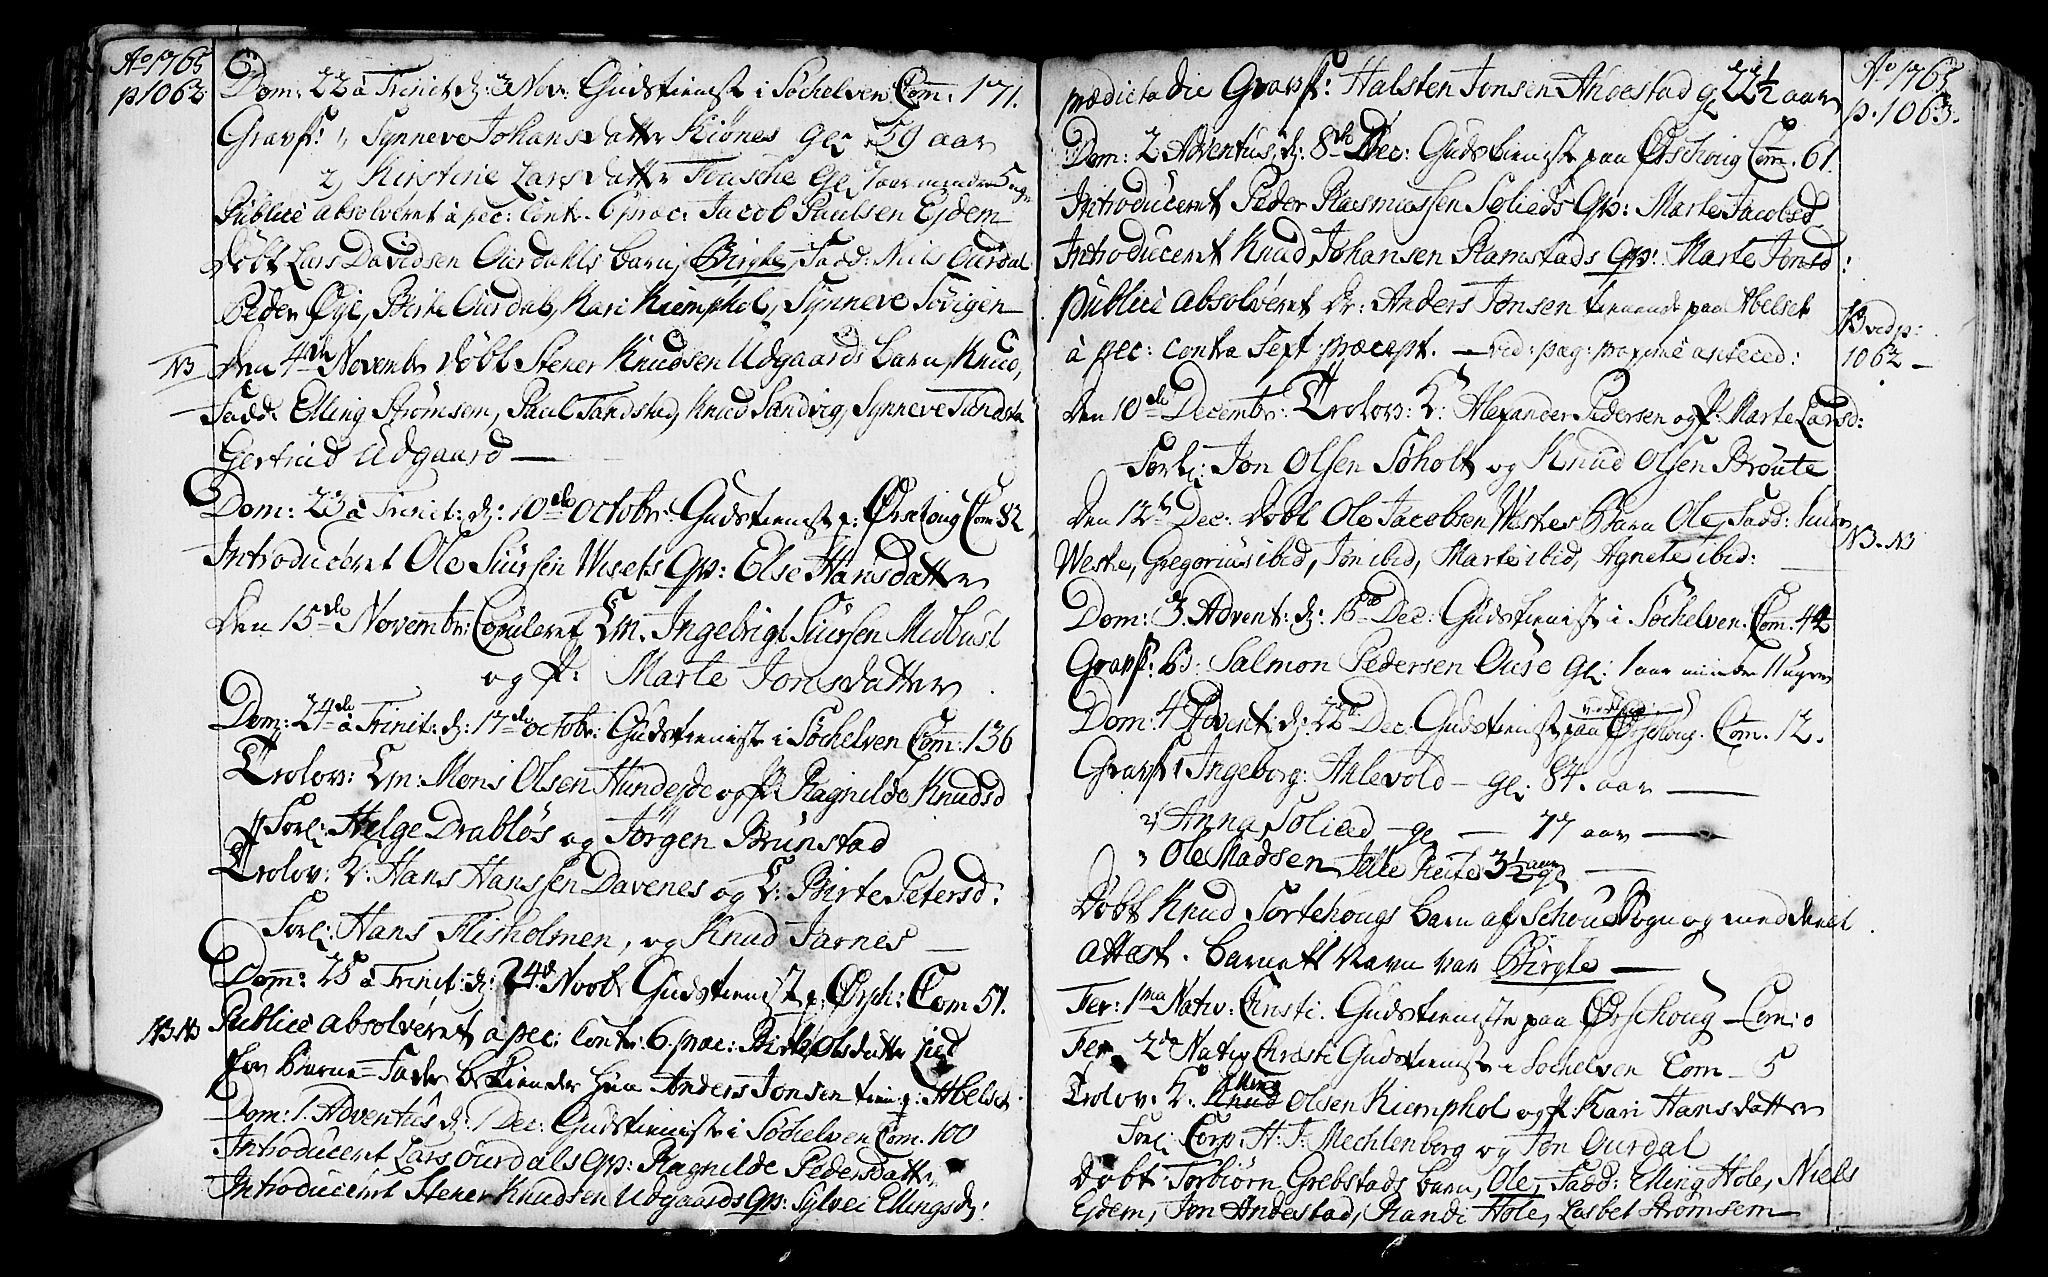 Ao 1765
p 1062
Dom: 22 à Trinit: d: 3 Nov: Gudstienest i Søchelven Com: 171.
Gravf: 1, Synneve Johansdatter Kiønes Gl: 59 aar
2, Kirstine Larsdatter Fensche Gl: 1 aar mindre 5 ugr
Publicè absolveret à pec: Contr. 6 præc: Jacob Paulsen Ejdem
Døbt Lars Davidsen Ourdahls barn, Birgte, Fadd: Niels Ourdal
Peder Øye, Berte Ourdal, Kari Kiemphol, Synneve Søvigen
NB den 4de Novembr døbt Stener Knudsen Udgaards barn, Knud,
Fadd: Elling Strømsem, Paul Tandstad, Knud Sandvig, Synneve Tandstad
Gertrud Udgaard —
Dom: 23 à Trinit: d: 10de octobr: Gudstienest p: Ørschoug Com 82
Introduceret Ole Siursen Wisets Qv: Else Hansdatter
den 15de Novembr: Copuleret Em. Ingebrigt Siursen Midbust
og P: Marte Jonsdatter
Dom: 24de à Trinit: d: 17de octobr: Gudstienest i Søchelven Com: 136
Trolov: Em: Mons Olsen Hundejde og P: Ragnilde Knudsd
Forl: Helge Drabløs og Jørgen Brunstad
Trolov: K: Hans Hanssen Davenes og E: Birte Petersd:
Forl: Hans Flisholmen, og Knud Jarnes —
Dom: 25 à Trinit: d: 24de Novbr Gudstienest p: Ørsch: Com 51.
NB NB Publicè absolveret à pec: Contr: 6 præc: Birte Olsdatter
for Barne-Fader bekiender hun Anders Jonsen tien: p: Abelset
Dom: 1. Adventus d: 1 Dec: Gudstienest i Søchelven Com. 100
Introduceret Lars Ourdals Qv: Ragnilde Pedersdatter
Introduceret Stener Knudsen Udgaards Qv: Sylvei Ellingsd:
Ao 1765
p. 1063.
prædicta die Gravf: Halsten Jonsen Andestad gl 22½ aar
Dom: 2 Adventus, d: 8de Dec: Gudstienest paa Ørschoug Com. 61.
Introduceret Peder Rasmussen Solieds Qv: Marte Jacobsd
Introduceret Knud Johansen Ramstads Qv: Marte Jonsd:
Publicè absolveret Dr: Anders Jonsen tienende paa Abelset
à pec: contra Sext: præcept. — vid: pag: proximè anteced:
NB vid p:
1062 —
den 10de Decembr: Trolov: K: Alexander Pedersen og P: Marte Larsd:
Forl: Jon Olsen Søholt og Knud Olsen Broute
den 12te Dec: døbt Ole Jacobsen Westres barn Ole, Fadd:
NB. NB
Westre, Gregorius ibid, Jon ibid, Marte ibid, Agnete ibid:
Dom: 3. Advent: d: 15de Dec: Gudstienest i Søchelven. Com: 44
Gravf: B: Salmon Pedersen Ouse gl: 1 aar mindre 11 uger
Dom: 4 Advent: d: 22de Dec: Gudstienest paa Ørschoug. Com. 12.
Gravf 1 Ingeborg: Ahlevold — gl: 84. aar —
2, Anna Solied — gl — 77 aar —
3, Ole Madsen Jelle Reite 3½ aar gl —
Døbt Knud Fortehougs barn af Schou Sogn og med
attest. barnetz Navn var Birgte —
Fer: 1ma Nativ: Christi. Gudstieneste paa Ørschoug — Com: 0
Fer. 2da Nativ Christi Gudstienest i Søchelven Com — 5
Trolov: K. Elling Olsen Kiemphol og P Kari Hansdatter
Forl: Corp: H: J: Mechlenborg og Jon Ourdal
Døbt Torbiørn Grebstads barn, Ole, Fadd: Elling Hole, Niels
Ejdem, Jon Andestad, Randi Hole, Lisbet Strømsem